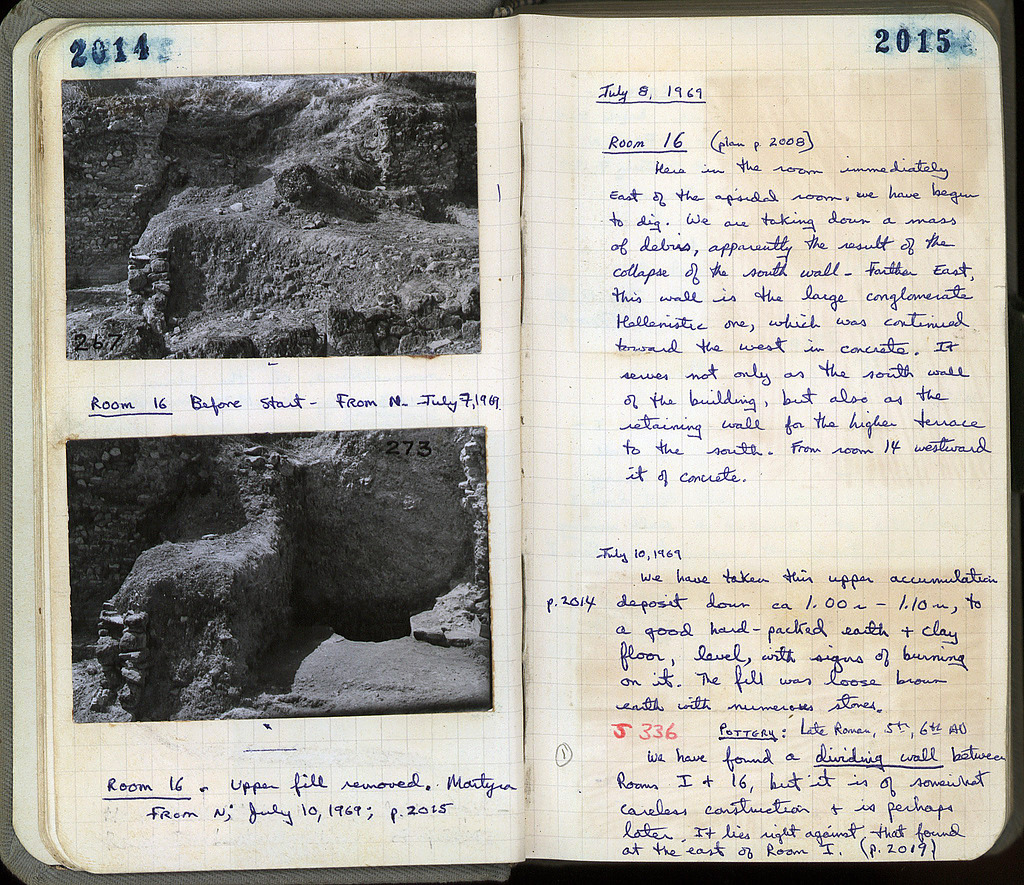 2014
267
Room 16 Before Start - From N. July 7, 1969
273
Room 16. Upper fill removed. Martyra
From N; July 10, 1969; p. 2015
2015
July 8, 1969
Room 16 (plan p. 2008)
Here in the room immediately
East of the apsidal room, we have begun
to dig. We are taking down a mass
of debris, apparently the result of the
collapse of the south wall - Farther East,
this wall is the large conglomerate
Hellenistic one, which was continued
toward the west in concrete. It
serves not only as the south wall
of the building, but also as the
retaining wall for the higher terrace
to the south. From room 14 westward
it of concrete.
July 10, 1969
We have taken this upper accumulation
p. 2014 deposit down ca 1.00 m - 1.10 m, to
a good hard-packed earth + clay
floor, level, with signs of burning
on it. The fill was loose brown
earth with numerous stones.
S 336 Pottery: Late Roman, 5th, 6th AD
① We have found a dividing wall between
Rooms I + 16, but it is of somewhat
careless construction + is perhaps
later. It lies right against that found
at the east of Room I. (p. 2019)